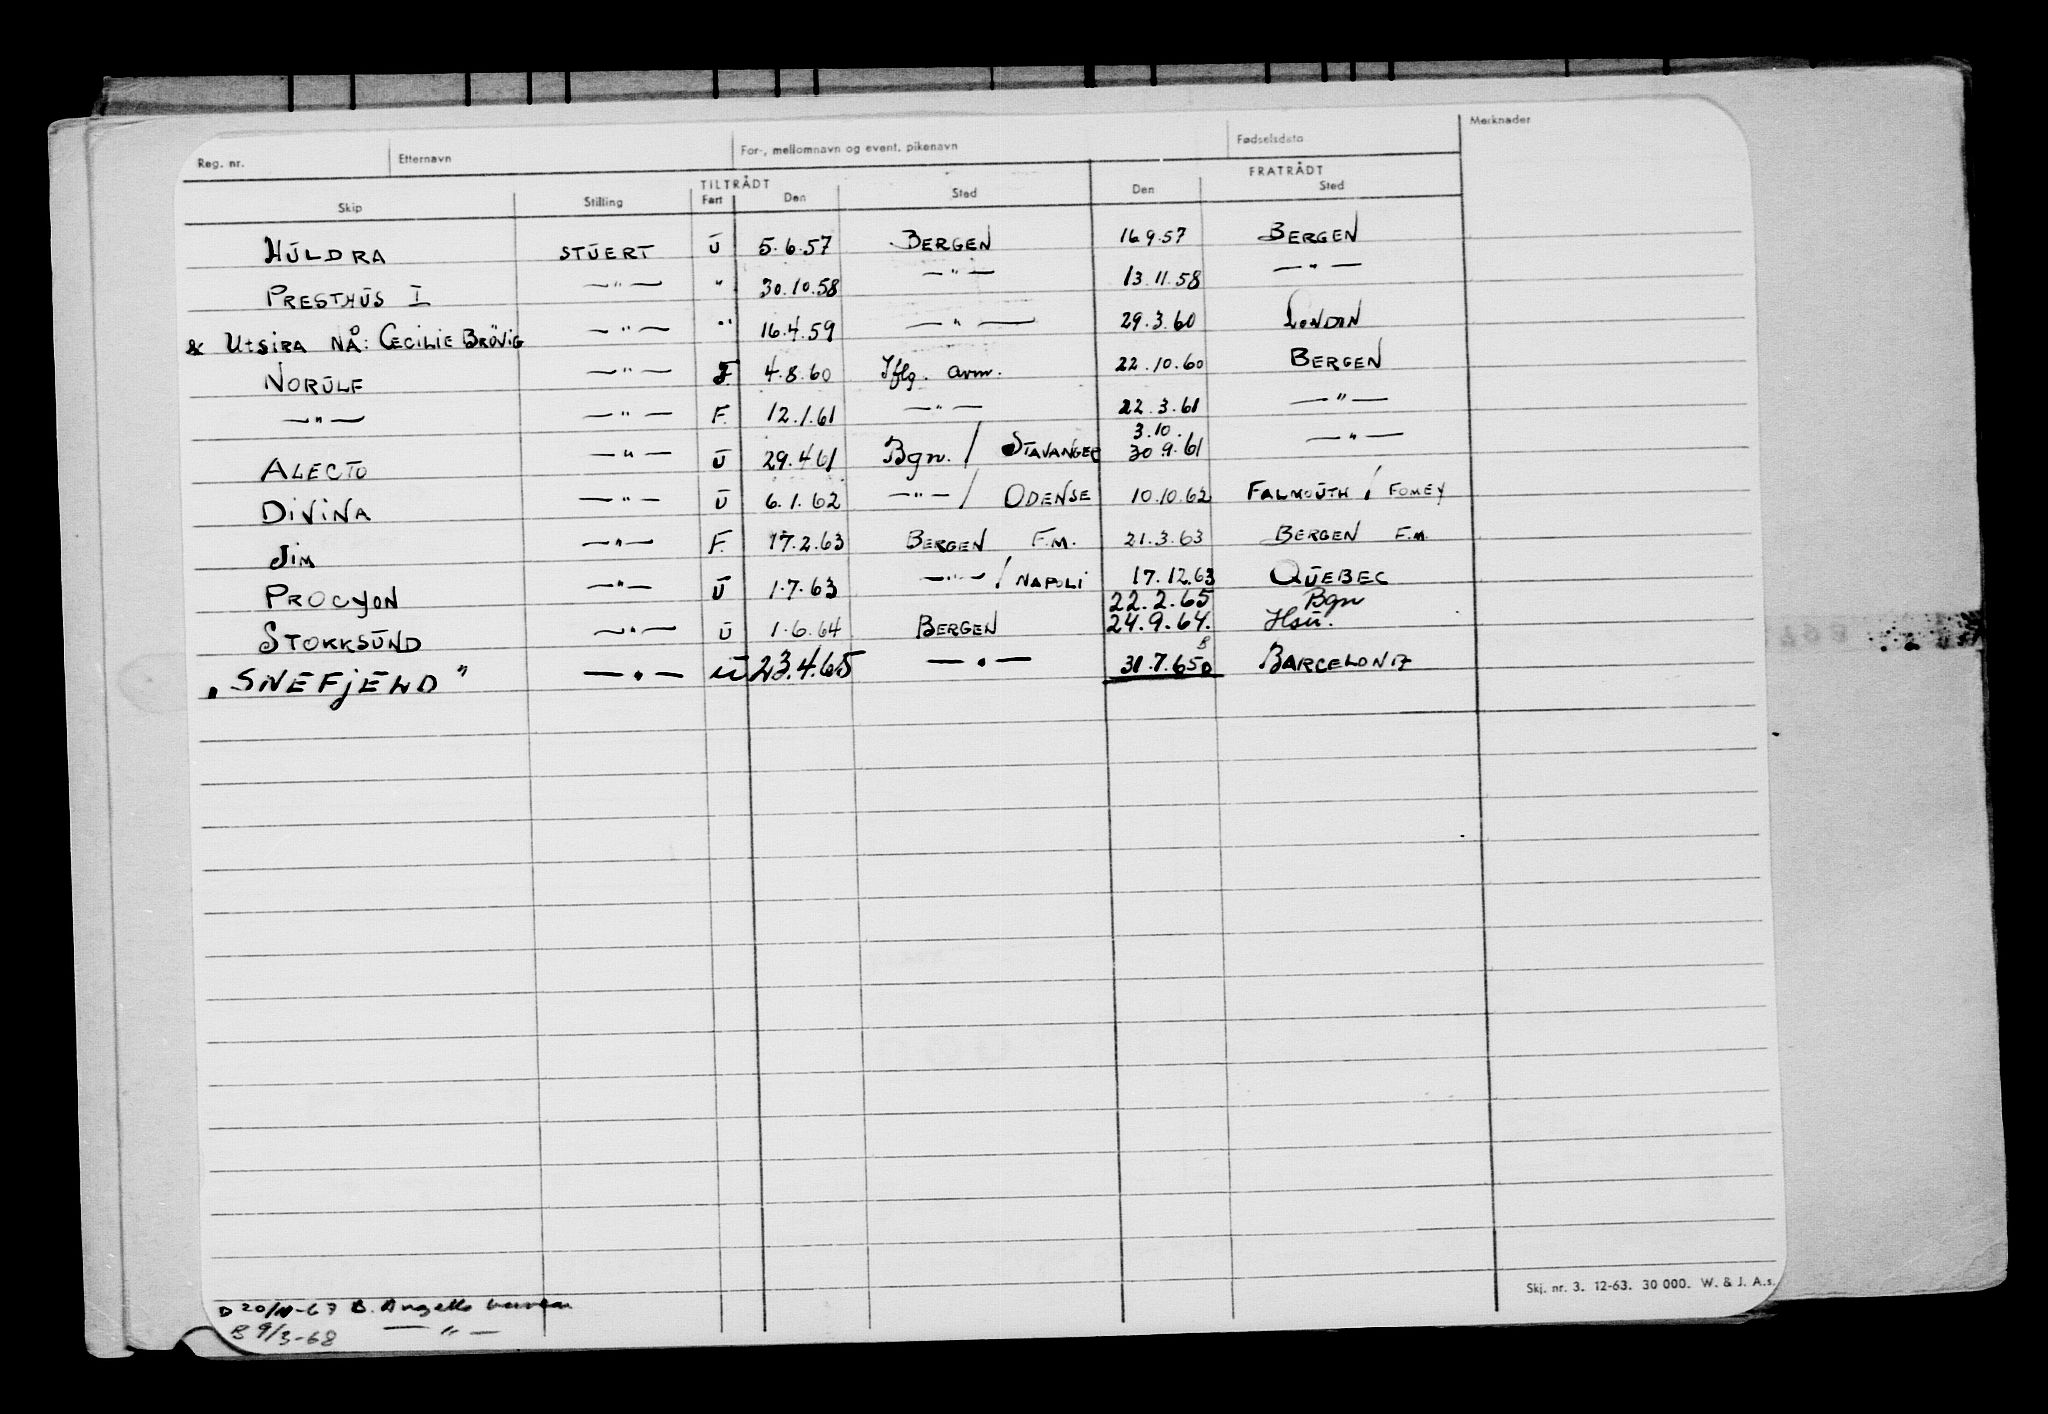 Reg. nr. Etternavn For-, mellomnavn og event. pikenavn Fødselsdato Merknader
TILTRÅDT FRATRÅDT
Skip Stilling Fart Den Sted Den Sted
HULDRA STUERT U 5.6.57 BERGEN 16.9.57 BERGEN
PRESTHUS I —"— " 30.10.58 —"— 13.11.58 —"—
& UTSIRA NÅ: CECILIE BRØVIG —"— " 16.4.59 —"— 29.3.60 LONDON
NORULF —"— F 4.8.60 Iflg. avm. 22.10.60 BERGEN
—"— —"— F. 12.1.61 —"— 22.3.61 —"—
3.10.
ALECTO —"— U 29.4.61 Bgn. / STAVANGER 30.9.61 —"—
DIVINA —"— U 6.1.62 —"— / ODENSE 10.10.62 FALMOUTH / FOWEY
JIM —"— F. 17.2.63 BERGEN F.M. 21.3.63 BERGEN F.M.
PROCYON —"— U 1.7.63 —"— / NAPOLI 17.12.63 QUEBEC
22.2.65 Bgn
STOKKSUND —"— U 1.6.64 BERGEN 24.9.64. Hsu.
"SNEFJELD" —"— U 23.4.65 —"— 31.7.65 BARCELONA
Skj. nr. 3. 12-63. 30 000. W. & J. A.s.
D 20/11-67 B. Angells
B 9/3-68 —"—